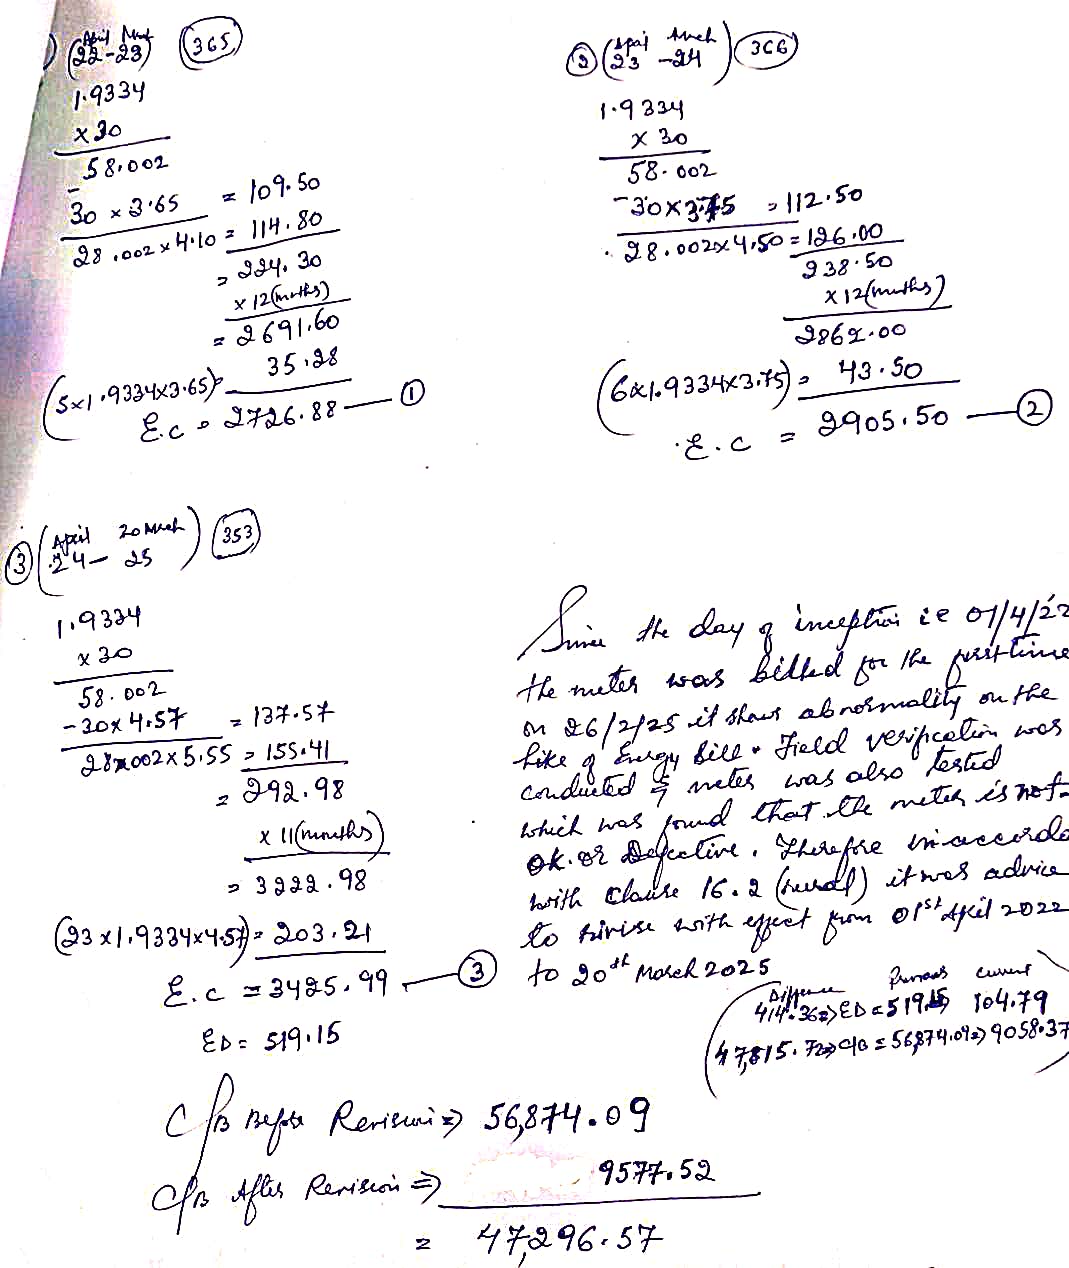 1) (April March 22-23) (365)
1.9334
x 30
58.002
- 30 x 3.65 = 109.50
28.002 x 4.10 = 114.80
= 224.30
x 12 (months)
= 2691.60
(5x1.9334x3.65) = 35.28
E.C = 2726.88 — ①
② (April March 23-24) (366)
1.9334
x 30
58.002
- 30 x 3.75 = 112.50
28.002 x 4.50 = 126.00
238.50
x 12 (months)
2862.00
(6x1.9334x3.75) = 43.50
E.C = 2905.50 — ②
③ (April 20 March 24-25) (353)
1.9334
x 30
58.002
- 30 x 4.57 = 137.57
28.002 x 5.55 = 155.41
= 292.98
x 11 (months)
= 3222.98
(23 x 1.9334 x 4.57) = 203.21
E.C = 3425.99 — ③
ED = 519.15
Since the day of inception ie 01/4/22
the meter was billed for the first time
on 26/2/25 it shows abnormality on the
hike of Energy bill. Field verification was
conducted & meter was also tested
which was found that the meter is not
ok. or Defective. Therefore in accorda
with clause 16.2 (rural) it was advice
to revise with effect from 01st April 2022
to 20th March 2025
Difference Previous current
414.36 => ED = 519.15 104.79
47,815.72 => C/B = 56,874.09 => 9058.37
C/B Before Revision => 56,874.09
C/B After Revision => 9577.52
= 47,296.57